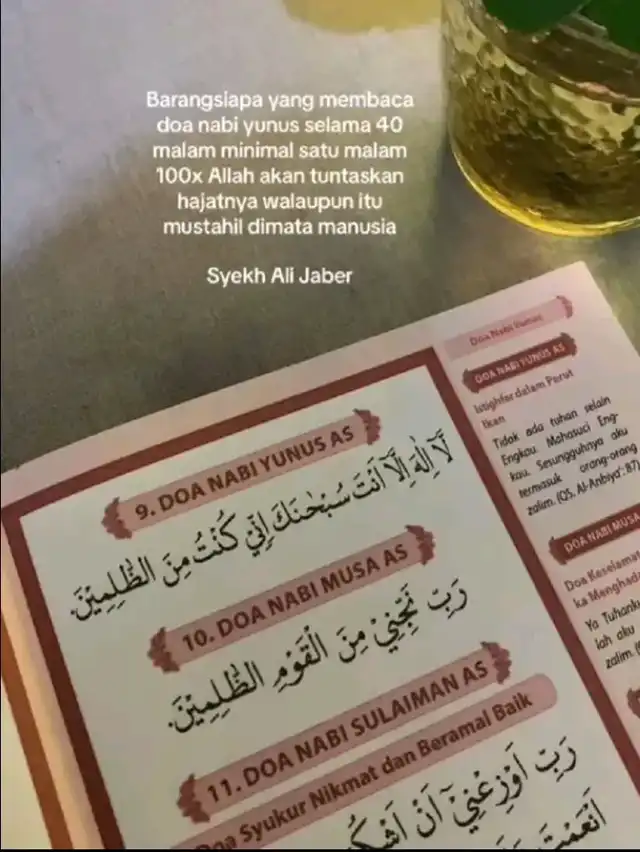 Barangsiapa yang membaca
doa nabi yunus selama 40
malam minimal satu malam
100x Allah akan tuntaskan
hajatnya walaupun itu
mustahil dimata manusia
Syekh Ali Jaber
9. DOA NABI YUNUS AS
لَآ إِلٰهَ إِلَّآ أَنْتَ سُبْحٰنَكَ إِنِّيْ كُنْتُ مِنَ الظّٰلِمِيْنَ.
10. DOA NABI MUSA AS
رَبِّ نَجِّنِيْ مِنَ الْقَوْمِ الظّٰلِمِيْنَ.
11. DOA NABI SULAIMAN AS
Doa Syukur Nikmat dan Beramal Baik
رَبِّ اَوْزِعْنِيْٓ اَنْ اَشْكُ
اَنْعَمْتَ
Doa Nabi Yunus
DOA NABI YUNUS AS
Istighfar dalam Perut
Ikan
Tidak ada tuhan selain
Engkau. Mahasuci Eng-
kau. Sesungguhnya aku
termasuk orang-orang
zalim. (QS. Al-Anbiya': 87)
DOA NABI MUSA
Doa Keselamat
ka Menghada
Ya Tuhank
lah aku
zalim. (